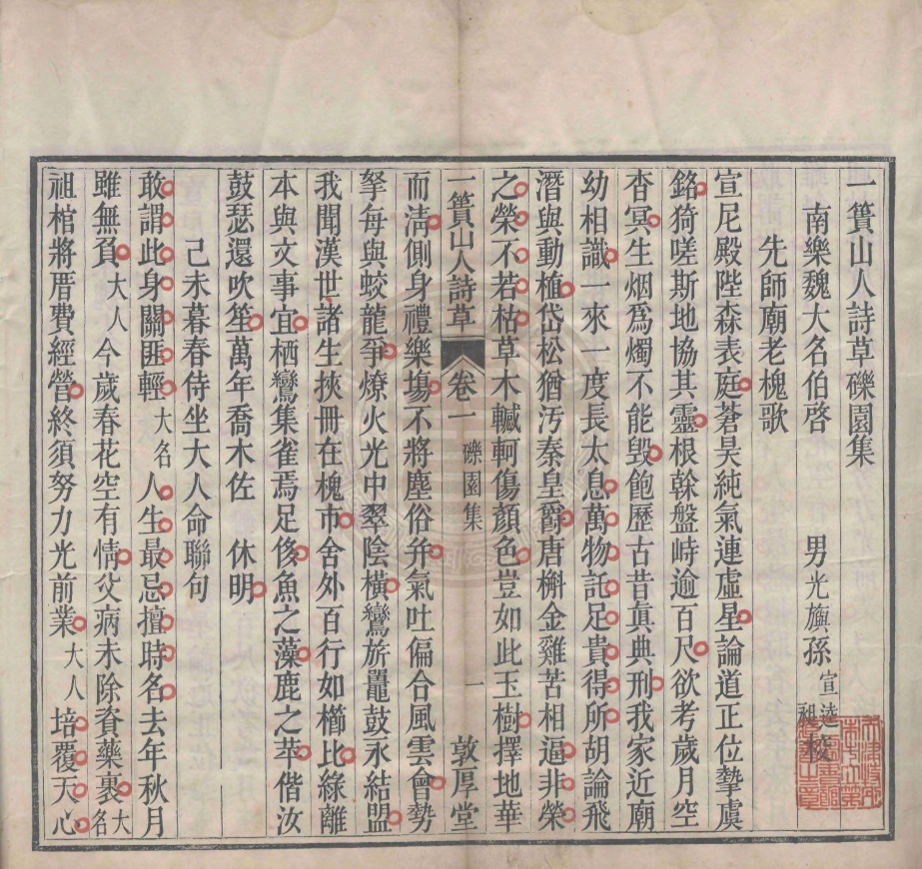 一簣山人詩草礫園集
南樂魏大名伯啓 男光旟孫宣逵祖校
先師廟老槐歌
宣尼殿陛森表庭蒼昊純氣連虛星論道正位摯虞
銘猗嗟斯地協其靈根榦盤峙逾百尺欲考歲月空
杳冥生烟爲燭不能毀飽歷古昔眞典刑我家近廟
幼相識一來一度長太息萬物託足貴得所胡論飛
潛與動植岱松猶汚秦皇爵唐槲金雞苦相逼非榮
之榮不若枯草木轗軻傷顏色豈如此玉樹擇地華
一簣山人詩草 卷一 礫園集 一 敦厚堂
而淸側身禮樂塲不將塵俗幷氣吐偏合風雲會勢
拏每與蛟龍爭燎火光中翠陰橫鸞旂鼉鼓永結盟
我聞漢世諸生挾冊在槐市舍外百行如櫛比綠離
本與文事宜栖鸞集雀焉足俊魚之藻鹿之苹偕汝
鼓瑟還吹笙萬年喬木佐 休明
己未暮春侍坐大人命聯句
敢謂此身關匪輕大名人生最忌擅時名去年秋月
雖無負大人今歲春花空有情父病未除資藥裹大名
祖棺將厝費經營終須努力光前業大人培覆天心